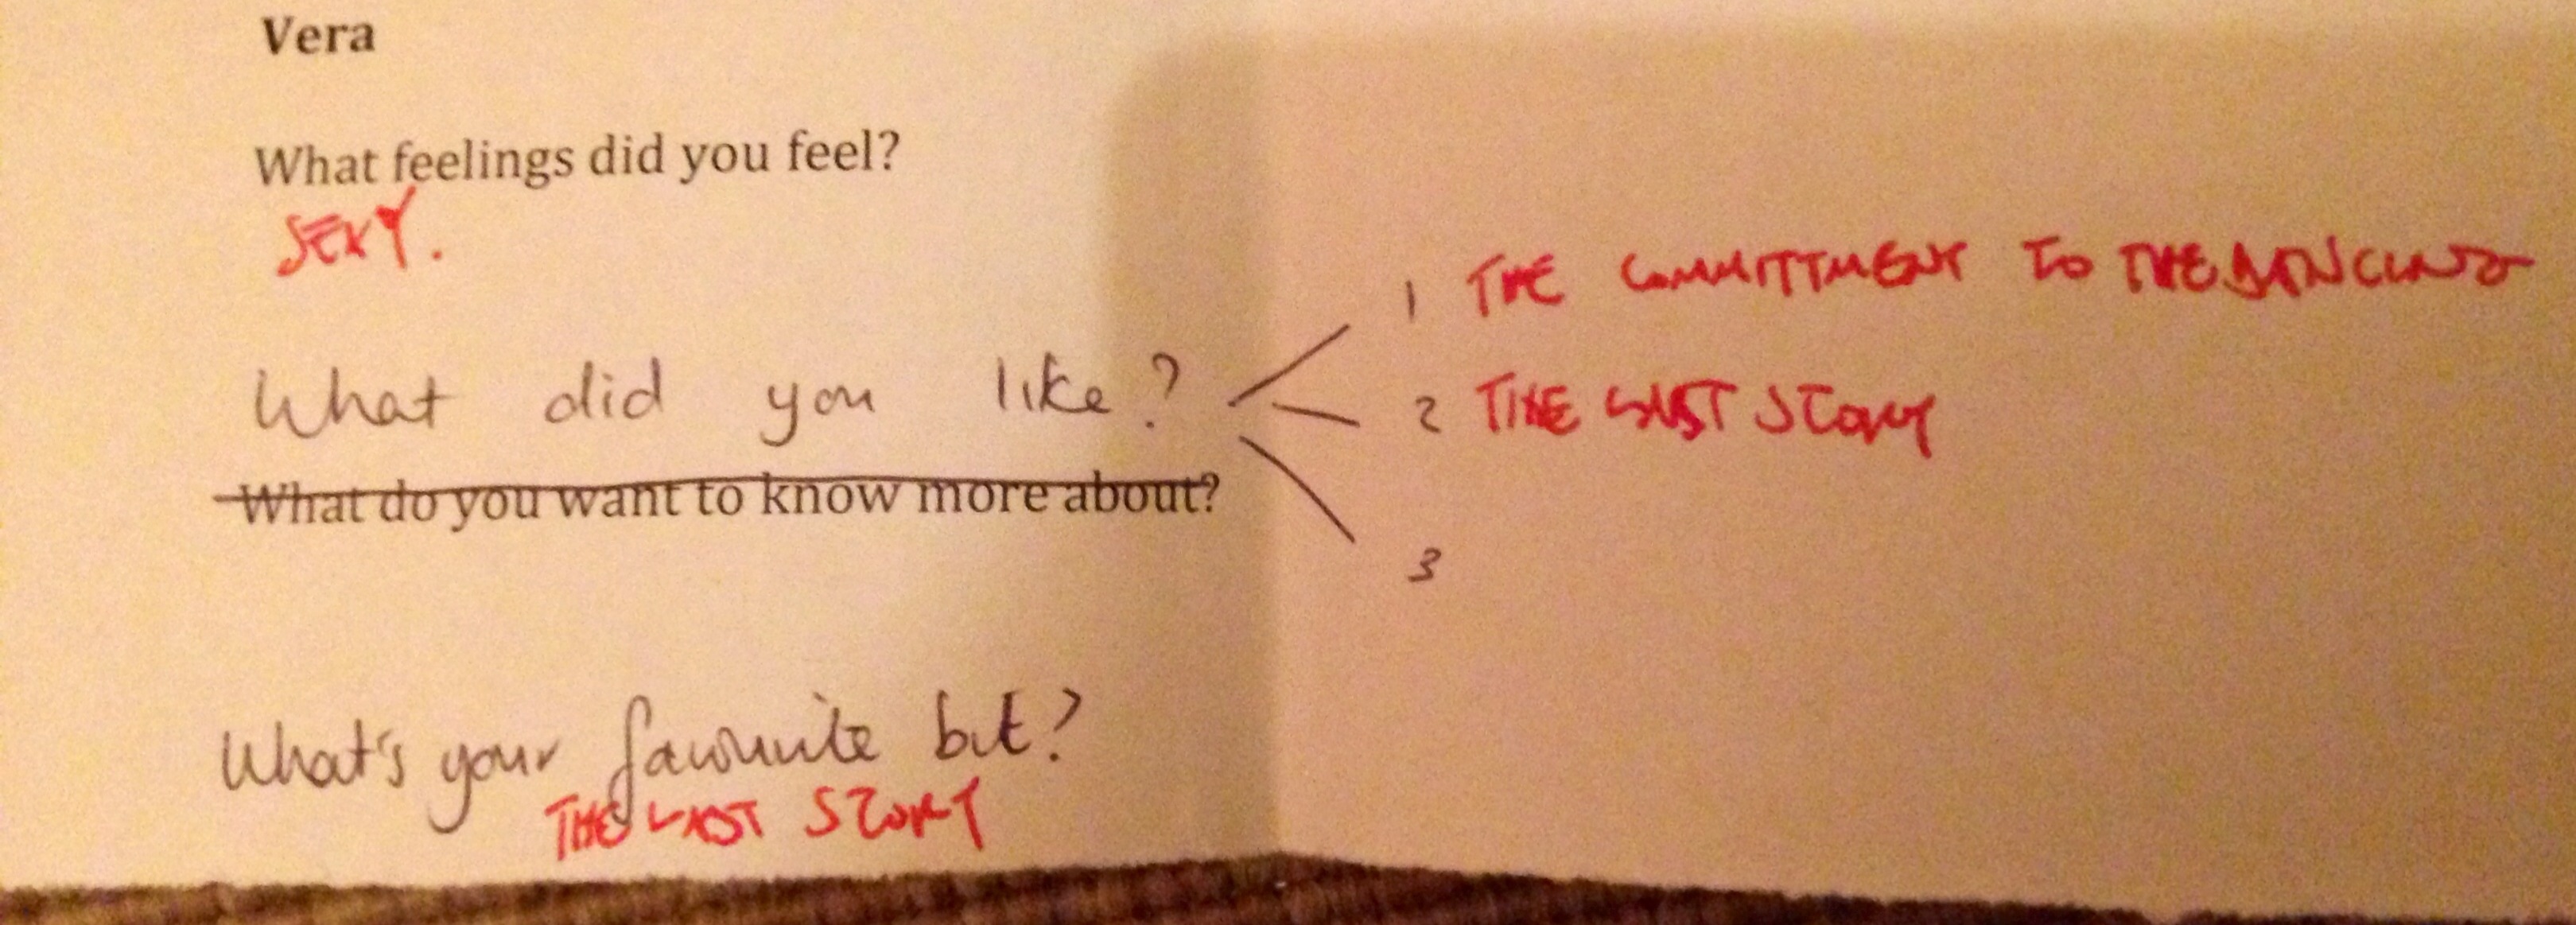 Vera
What feelings did you feel?
SEXY.
What did you like?
1 THE COMMITTMENT TO THE DANCING
2 THE LAST STORY
3
What do you want to know more about?
What's your favourite bit?
THE LAST STORY